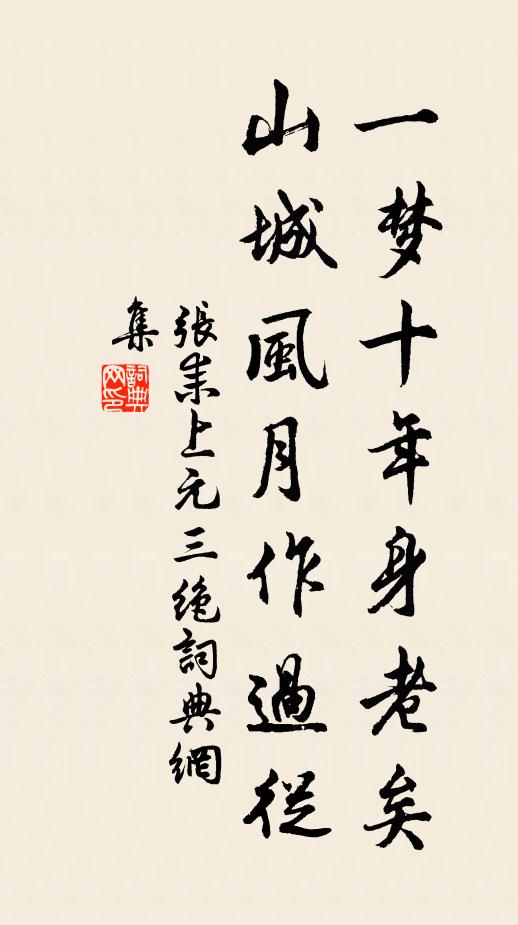 一梦十年身老矣
山城風月作過從
張耒上元三絶詞典網
集
詞典
网印